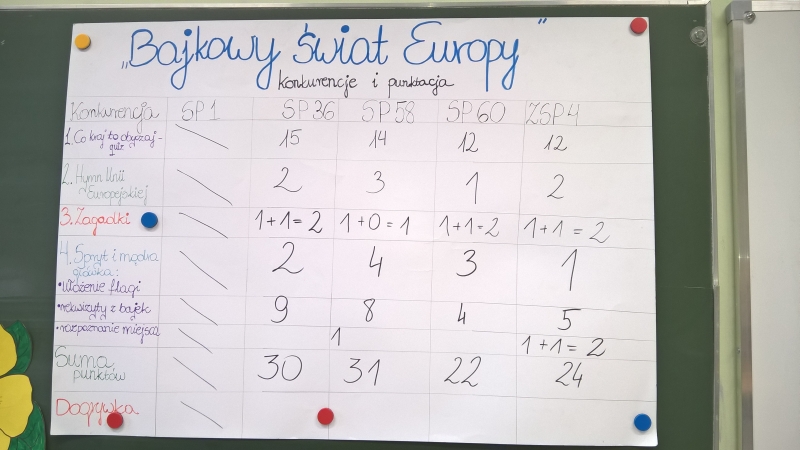 „Bajkowy Świat Europy"
Konkurencje i punktacja
Konkurencja SP 1 SP 36 SP 58 SP 60 ZSP 4
1. Co kraj to obyczaj - 15 14 12 12
2. Hymn Unii 2 3 1 2
Europejskiej
3. Zagadki 1+1=2 1+0=1 1+1=2 1+1=2
4. Spryt i mądra 2 4 3 1
główka:
• ułożenie flagi
• rekwizyty z bajek 9 8 4 5
• rozpoznanie miejsca 1 1+1=2
Suma 30 31 22 24
punktów
Dogrywka